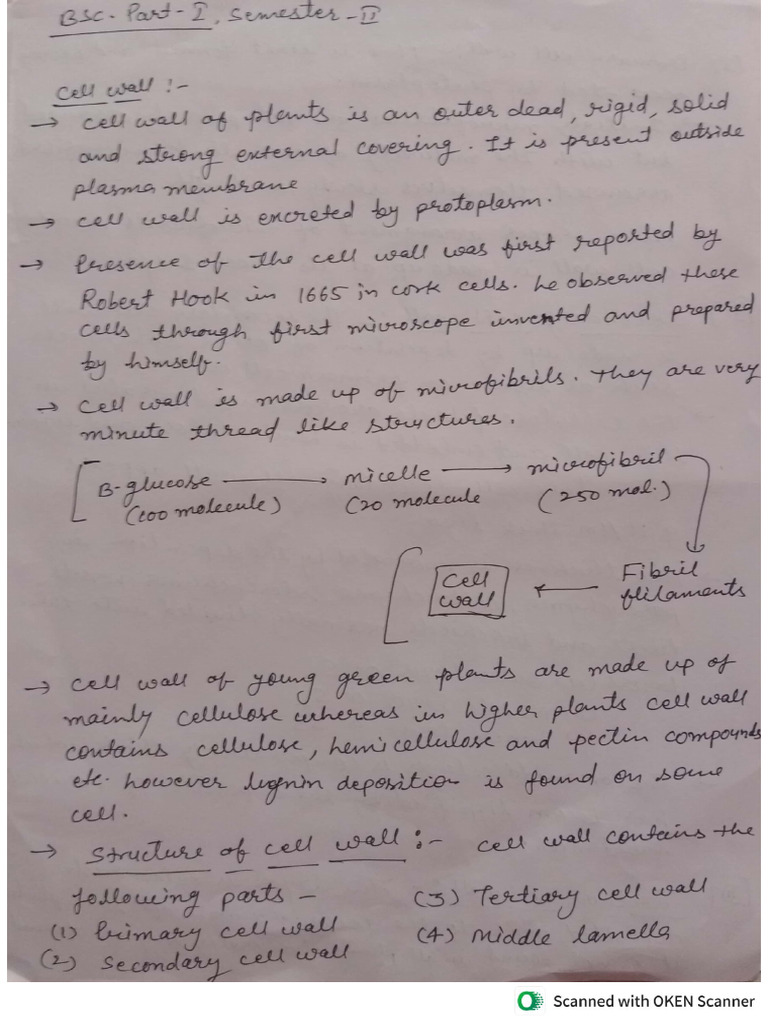 BSC- Part-I, Semester-II
Cell wall :-
→ Cell wall of plants is an outer dead, rigid, solid
and strong external covering. It is present outside
plasma membrane
→ cell wall is excreted by protoplasm.
→ Presence of the cell wall was first reported by
Robert Hook in 1665 in cork cells. he observed these
cells through first microscope invented and prepared
by himself.
→ Cell wall is made up of microfibrils. They are very
minute thread like structures.
B-glucose → micelle → microfibril
(100 molecule) (20 molecule (250 mol.)
Cell wall ← Fibril
filaments
→ Cell wall of young green plants are made up of
mainly cellulose whereas in higher plants cell wall
contains cellulose, hemicellulose and pectin compounds
etc. however lignin deposition is found on some
cell.
→ Structure of cell wall :- cell wall contains the
following parts -
(1) Primary cell wall
(2) Secondary cell wall
(3) Tertiary cell wall
(4) Middle lamella
Scanned with OKEN Scanner